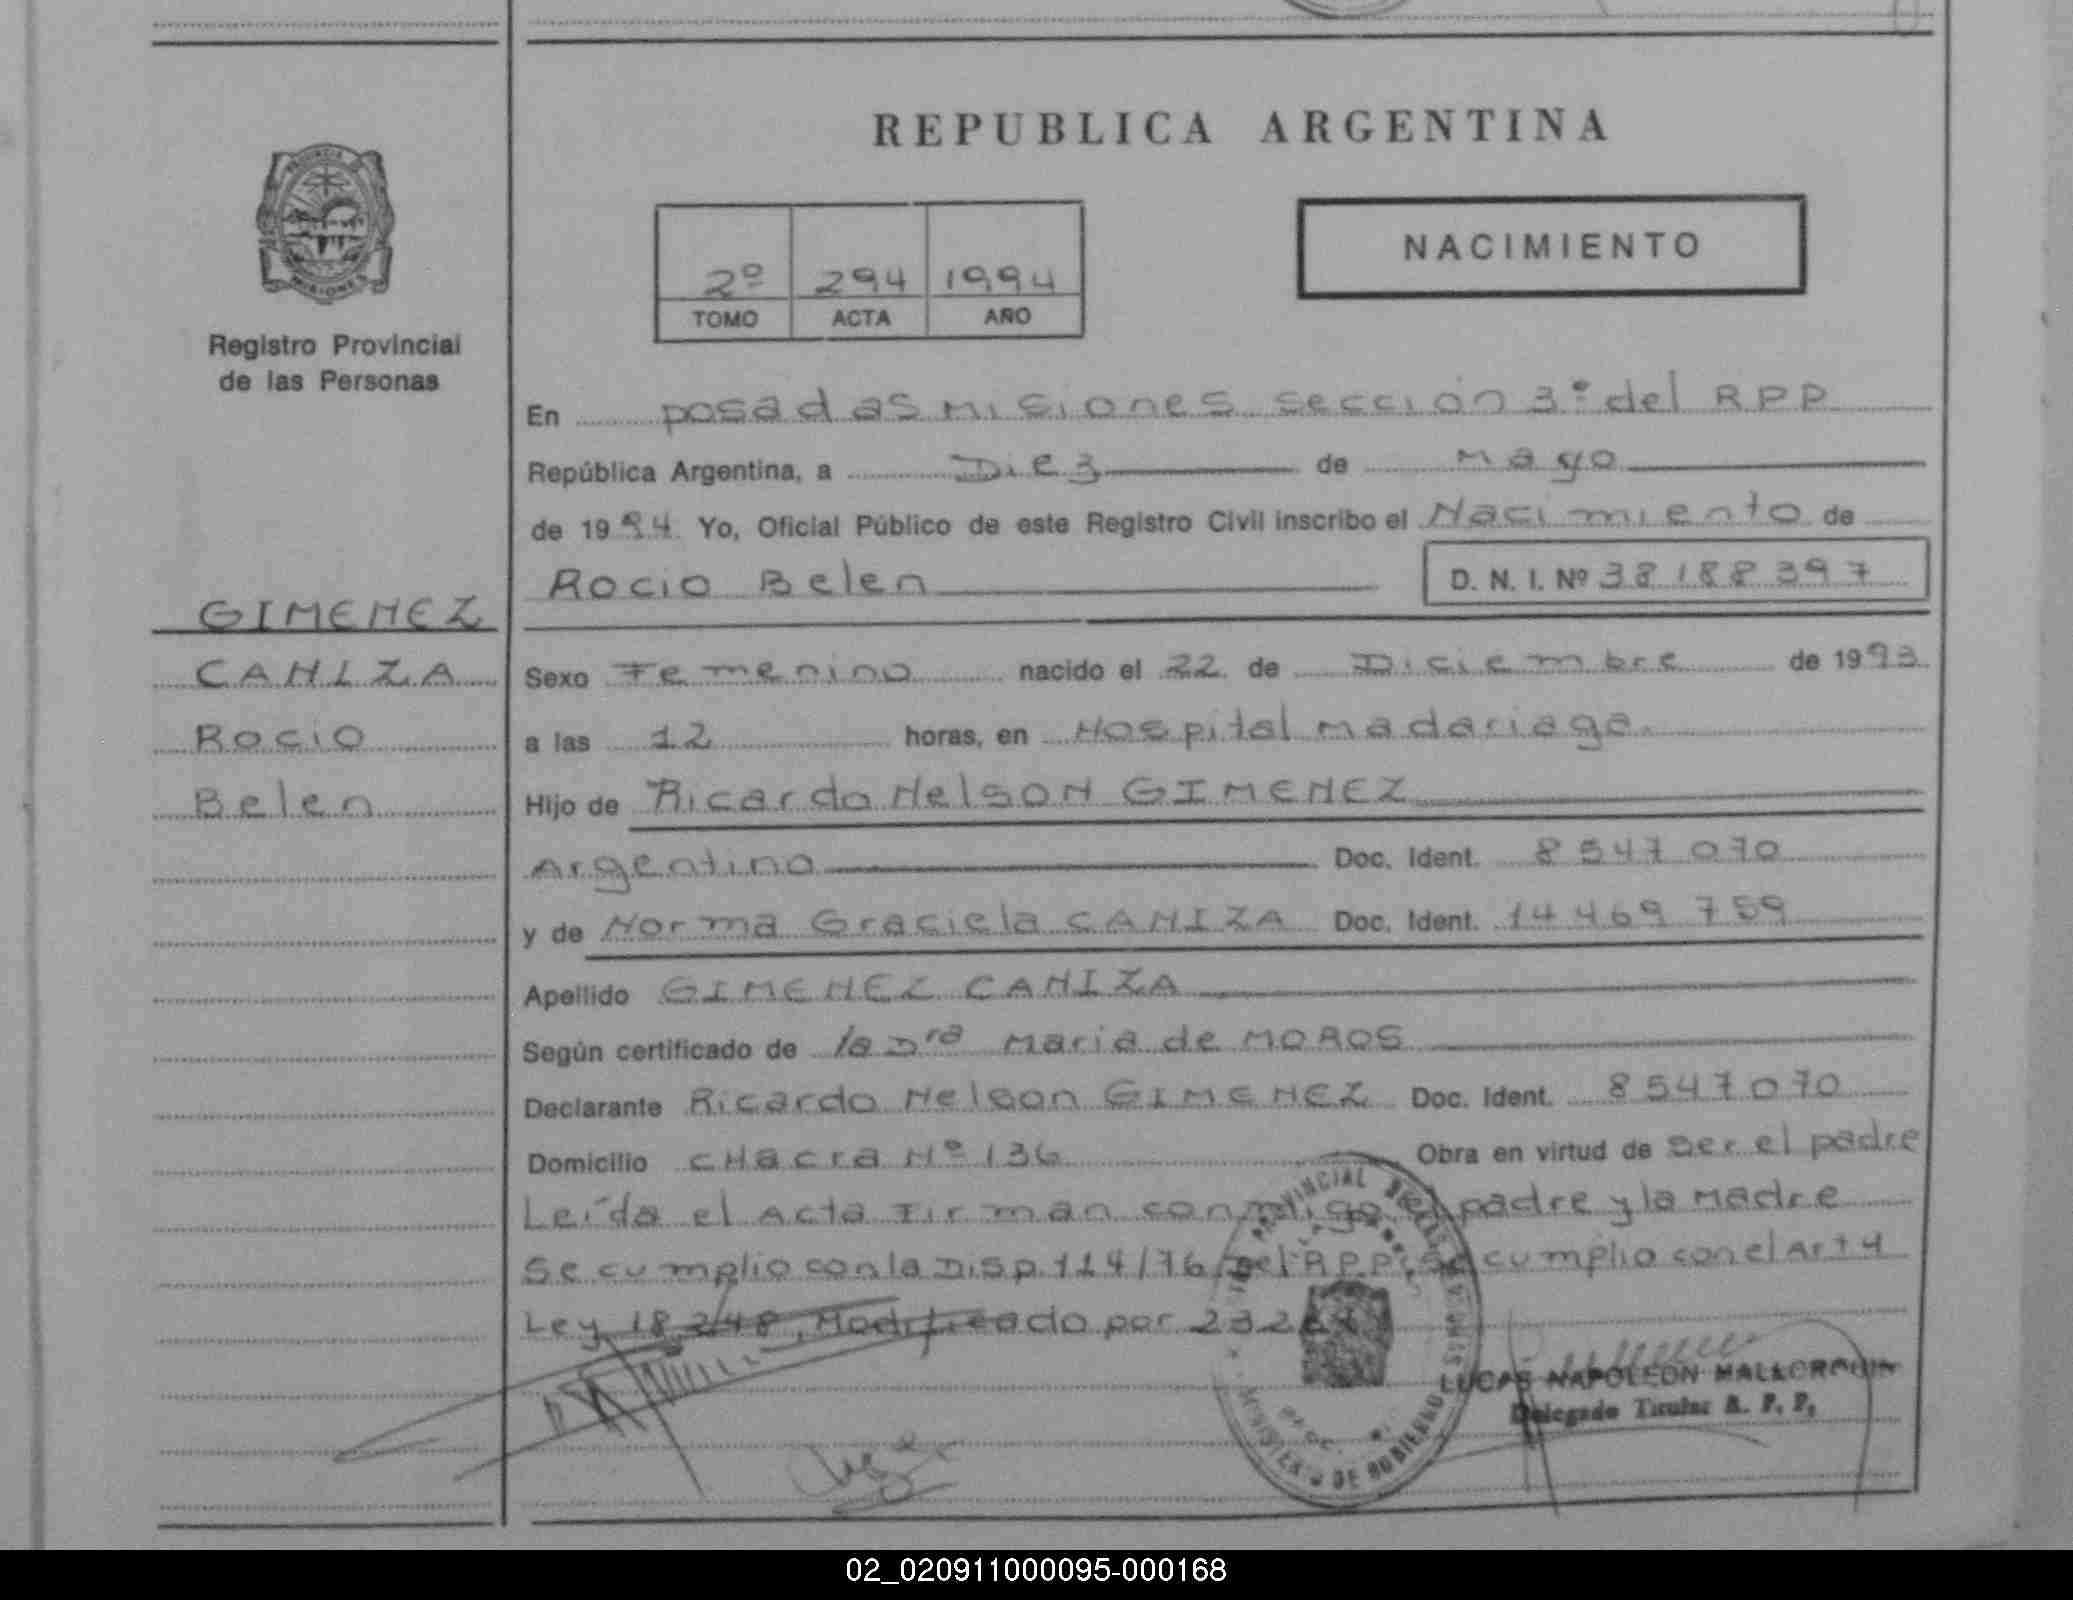 REPUBLICA ARGENTINA
PROVINCIA DE MISIONES
Registro Provincial
de las Personas
2º 294 1994
TOMO ACTA AÑO
NACIMIENTO
En posadas Misiones sección 3º del RPP
República Argentina, a Diez de Mayo
de 1994 Yo, Oficial Público de este Registro Civil inscribo el Nacimiento de
Rocio Belen D. N. I. Nº 38188397
GIMENEZ
CANIZA
Rocio
Belen
Sexo Femenino nacido el 22 de Diciembre de 1993
a las 12 horas, en Hospital Madariaga.
Hijo de Ricardo Nelson GIMENEZ
Argentino Doc. Ident. 8547070
y de Norma Graciela CANIZA Doc. Ident. 14469759
Apellido GIMENEZ CANIZA
Según certificado de la Dra Maria de MOROS
Declarante Ricardo Nelson GIMENEZ Doc. Ident. 8547070
Domicilio CHacra Nº 136 Obra en virtud de ser el padre
Leída el Acta Firman conmigo el padre y la Madre
Se cumplio con la Disp. 114/76 Del RPP, Se cumplio con el Art 4
Ley 18.248, Modificado por
LUCAS NAPOLEON
Delegado Titular R. P. P.
PROVINCIAL DE LAS
DE GOBIERNO
02_020911000095-000168